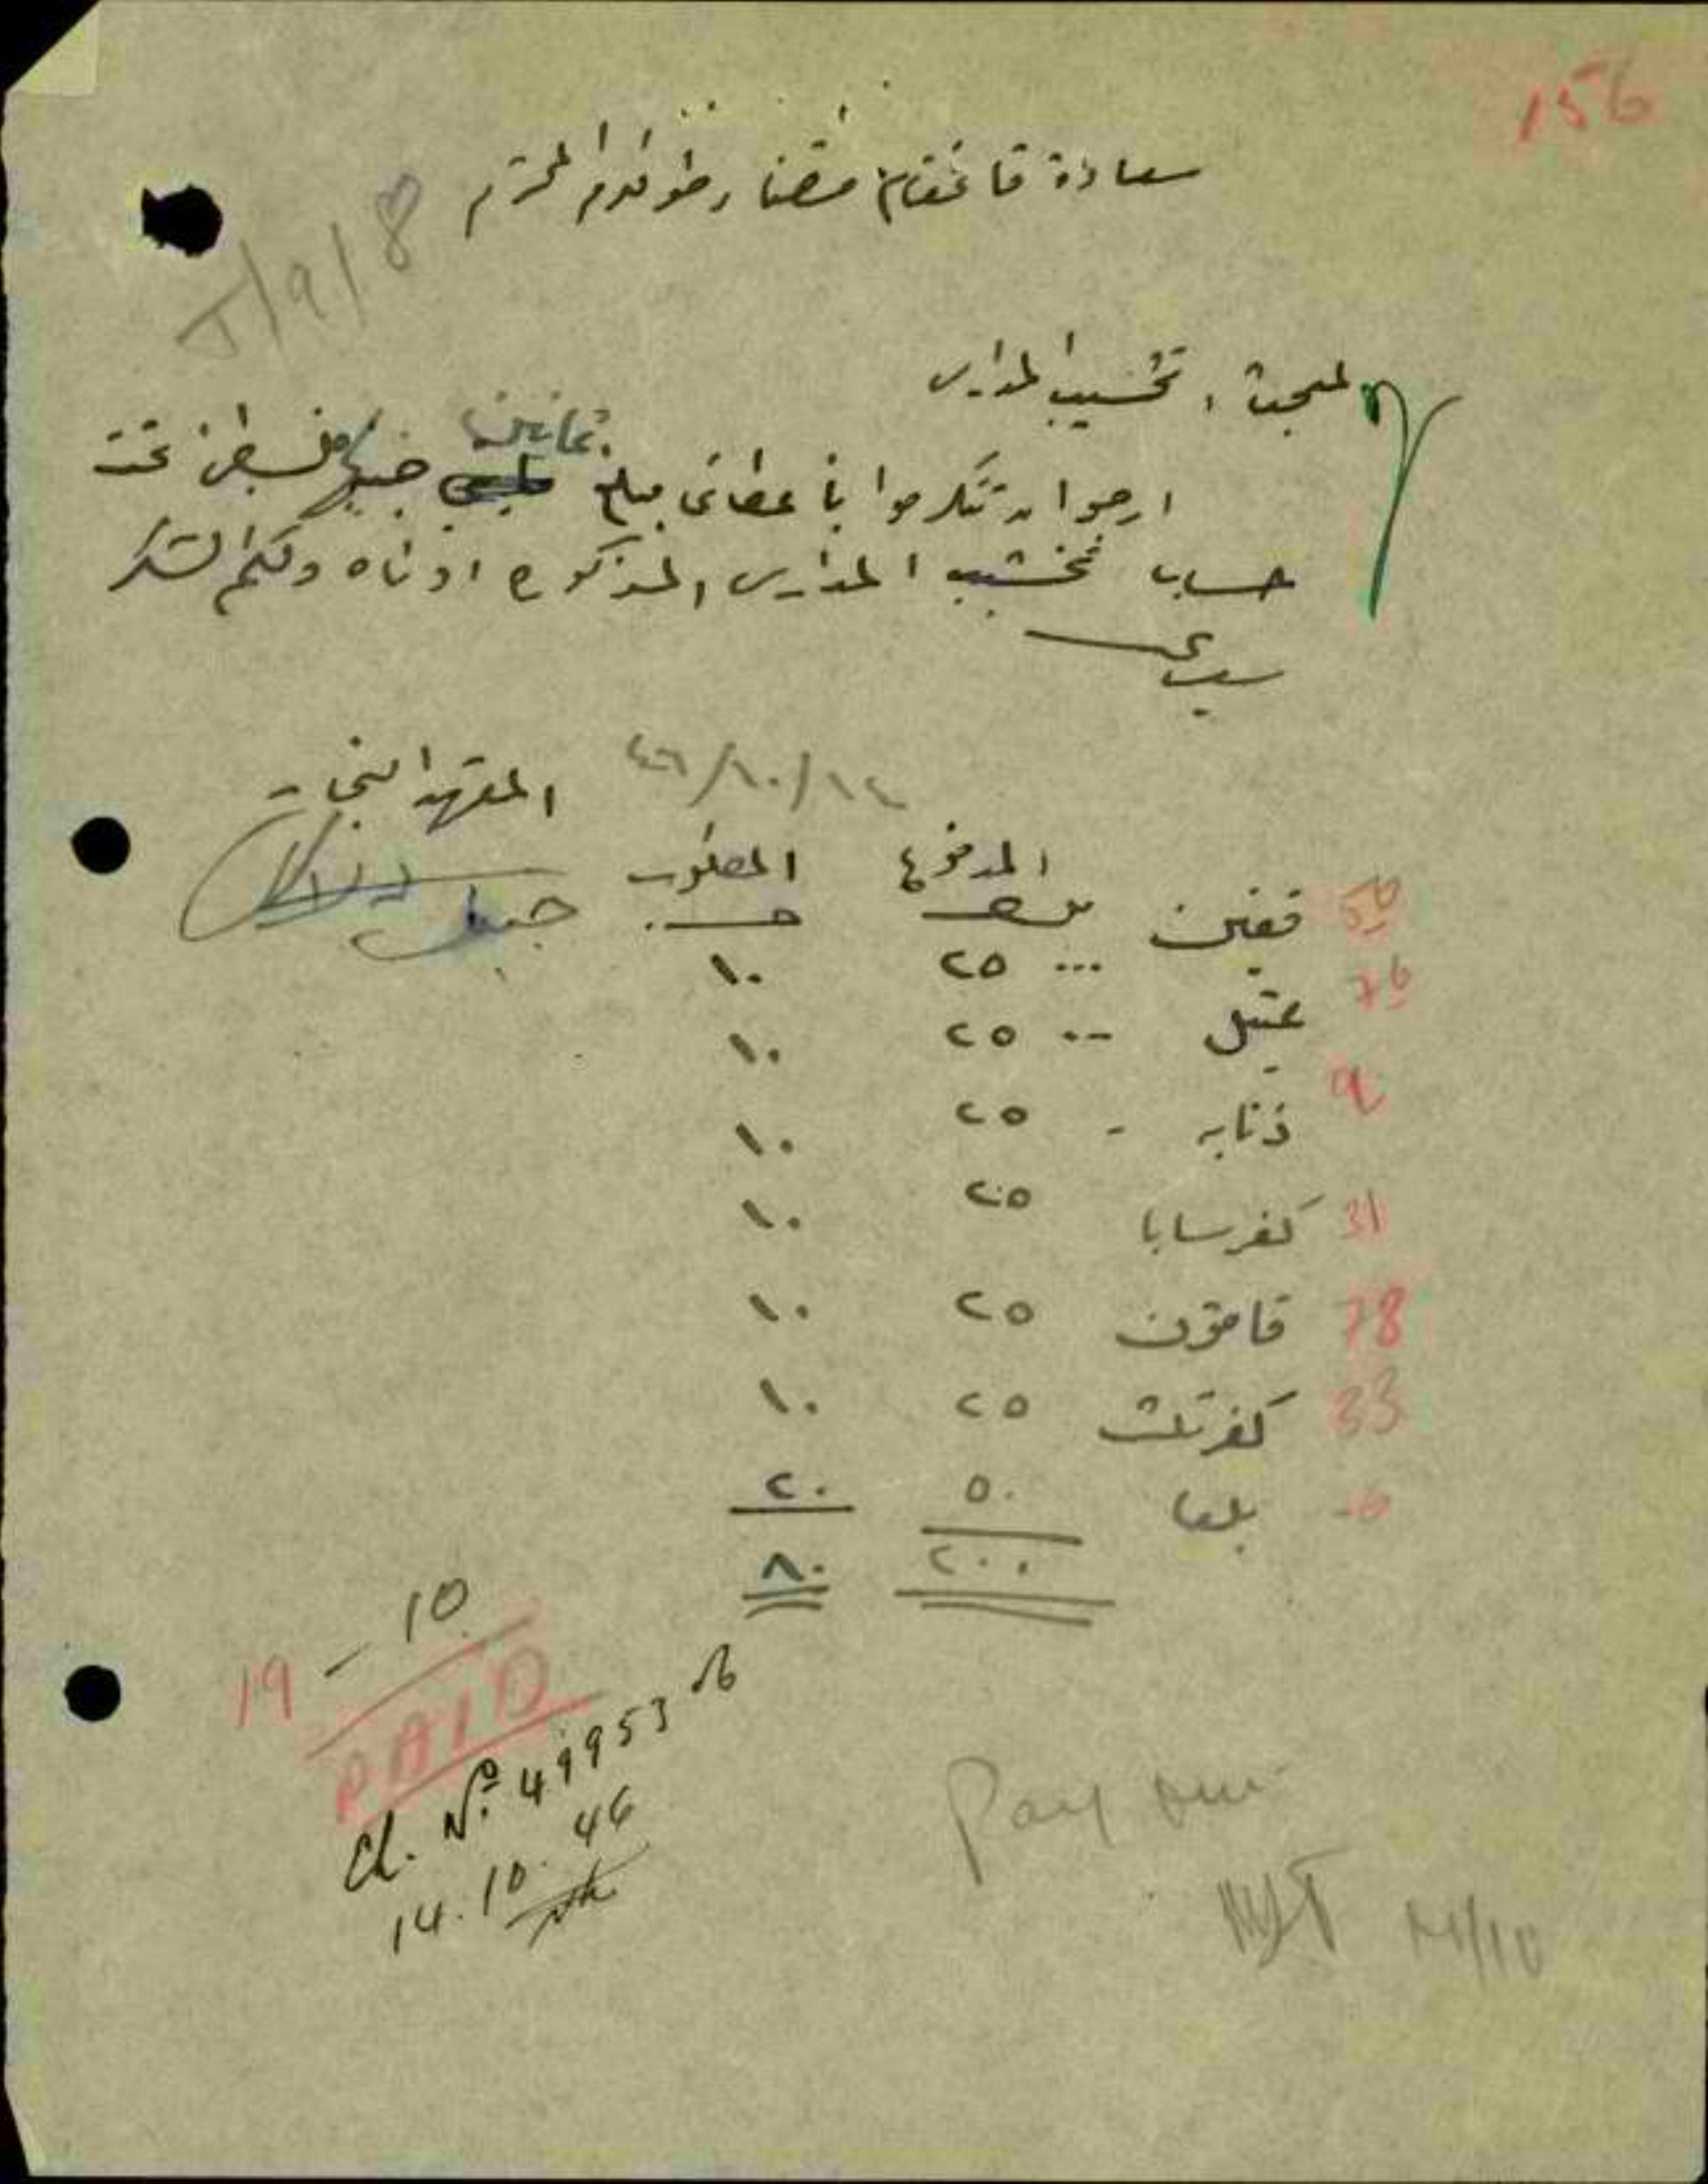 156
سعادة قائمقام قضاء طولكرم المحترم
J/9/8
المبحث : تخشيب المدارس
ثمانين
ارجو ان تتكرموا باعطائي مبلغ جنيه فلسطيني تحت
حساب تخشيب المدارس المذكوره ادناه ولكم الشكر
سيدي
١٤/١٠/٤٦
المتعهد النجار
المدفوع المطلوب
56 قفين ٢٥ ١٠
76 عتيل ٢٥ ١٠
9 ذنابه ٢٥ ١٠
31 كفرسابا ٢٥ ١٠
78 قاقون ٢٥ ١٠
33 كفر ثلث ٢٥ ١٠
بلعا ٥٠ ٢٠
٢٠٠ ٨٠
19 — 10
PAID
Ch. No. 49953
14.10.46
Pay
14/10